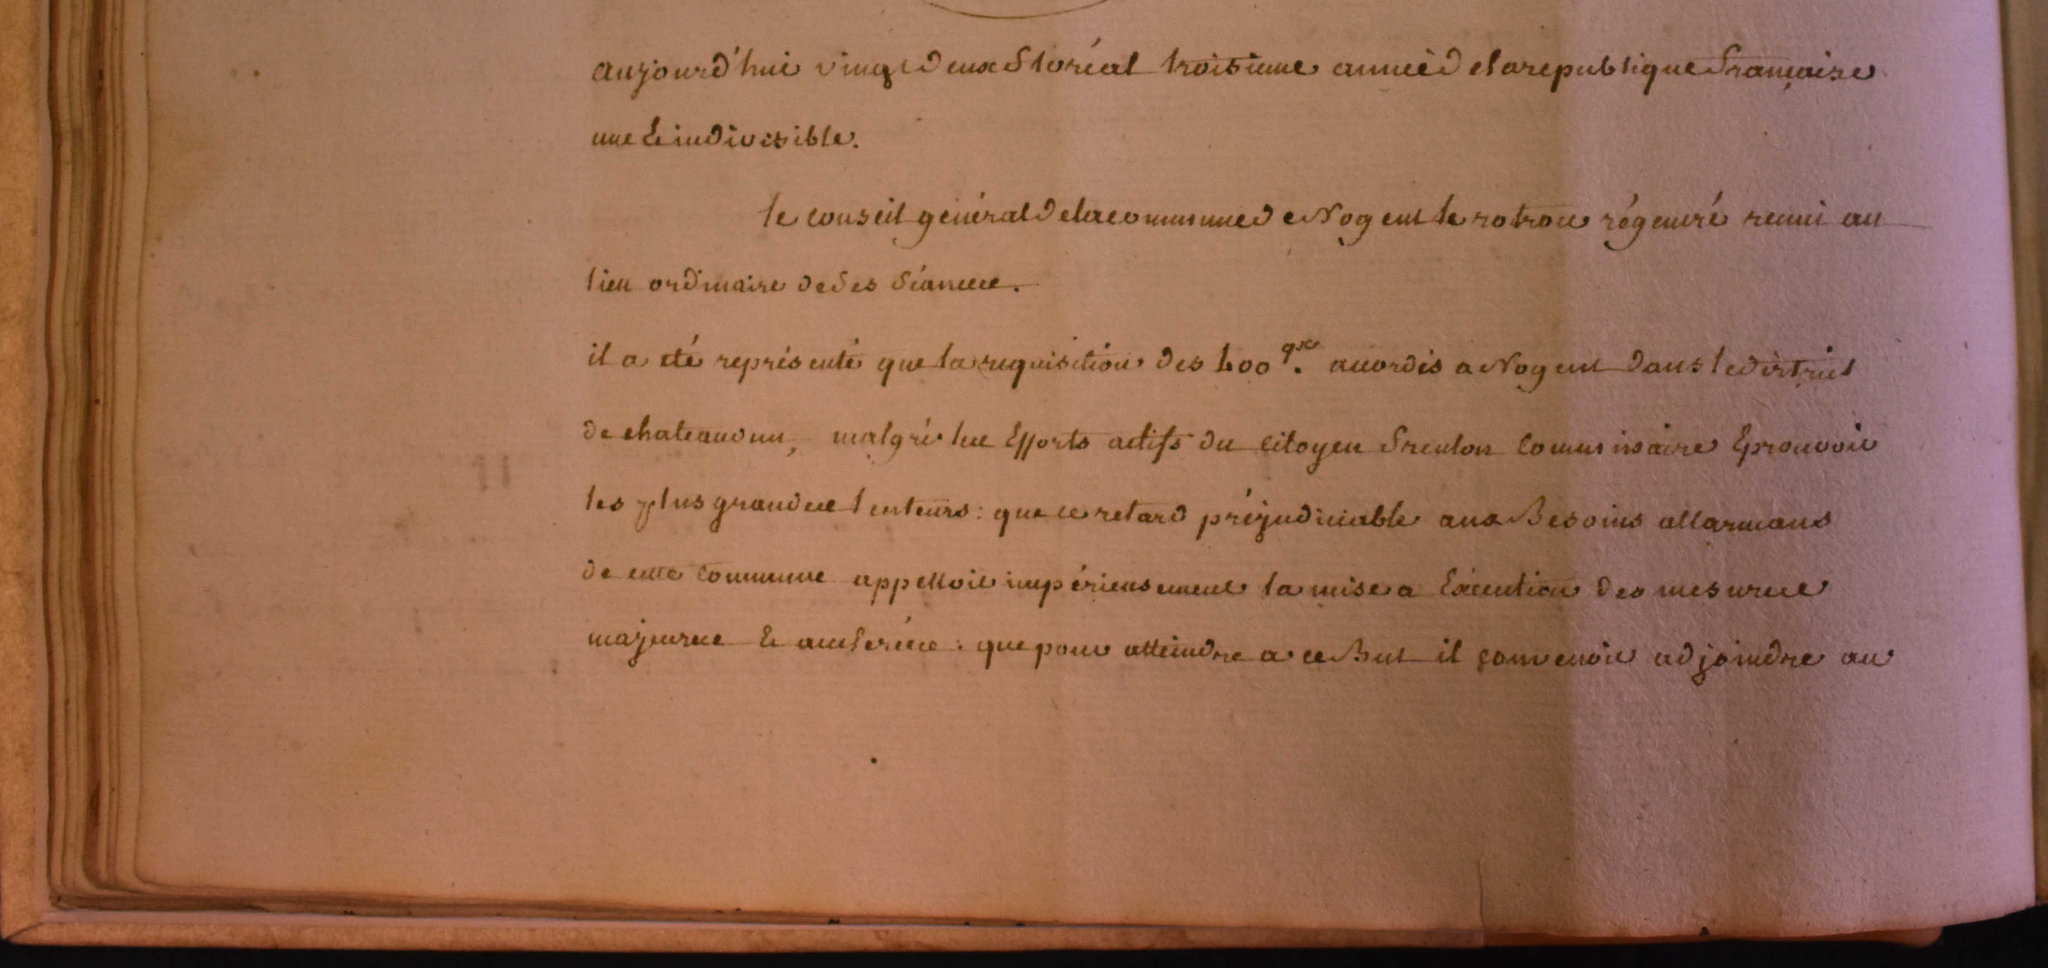 aujourd'hui vingt deux floréal troisieme année de la republique française
une & indivisible.
le conseil général de la commune de Nogent le rotrou régénéré reuni au
lieu ordinaire de ses séances.
il a été représenté que la requisition des 600 qx. accordés a Nogent dans le district
de chateaudun, malgré les Efforts actifs du citoyen commissaire Eprouvoit
les plus grandes lenteurs : que ce retard préjudiciable aux Besoins allarmans
de cette commune appelloit impérieusement la mise a Exécution des mesures
majeures & accelerées : que pour atteindre a ce But il convenoit adjoindre au